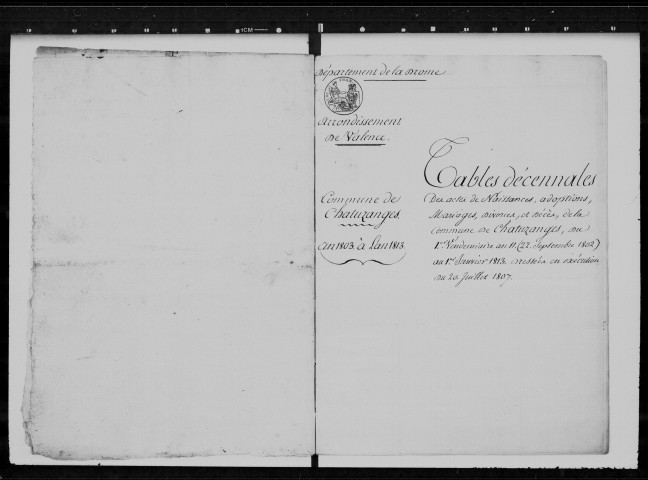 Département de la Drome
Arrondissement
de Valence.
Commune de
Chatuzanges.
An 1803 à l'an 1813.
Tables décennales
Des actes de Naissances, adoptions,
Mariages, divorces, et décès, de la
commune de Chatuzanges, du
1er Vendemiaire an 11. (22. Septembre 1802)
au 1er Janvier 1813. dressées en exécution
du 20 Juillet 1807.
1CM